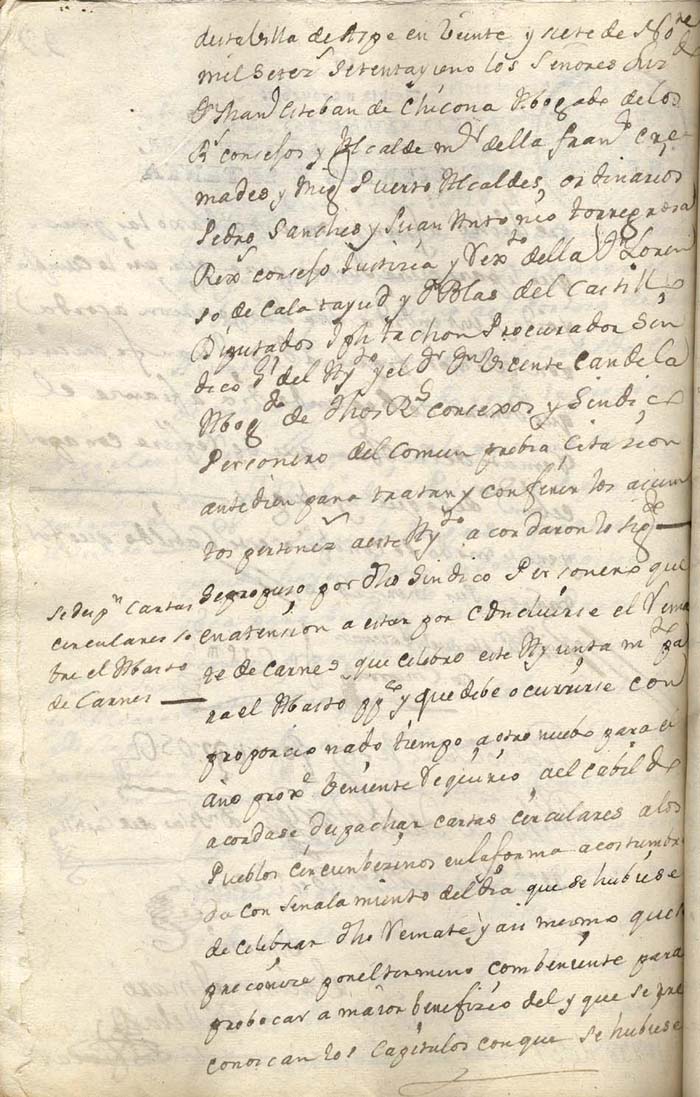 destabilla de Aspe en Veinte y siete de Nore de
mil Setezs Setentayuno los Señores
Dn Franco Esteban de Chicona Abogado delos
Rs consejos y Alcalde mor della Franco Cre
mades y Migl Puerto Alcaldes ordinarios
Pedro Sanches y Juan Antonio torregrosa
Rexs consejo Justizia y Rexto della Dn Loren
so de Calatayud y Dn Blas del Castillo
Diputados Jph tachon Procurador Sin
dico Gl del Ayto y el Dr Dn Vicente Candela
Abogdo de dhos Rs consexos y Sindico
Personero del Comun prebia Citazion
antedien para tratar y conferir los asum
tos pertenezs aeste Ayto acordaron lo sigte
Sepropuso por dho Sindico Personero que
Se desps Cartas
circulares so
bre el Abasto
de Carnes
enatension a estar por concluirse el Rema
te de carnes que celebro este Ayuntamto pa
ra el Abasto ppco y que debe ocurrirse con
proporcionado tiempo a otro nuebo para el
año proxo beniente Requirio a el Cabildo
acordase despachar cartas circulares a los
Pueblos circunbezinos enlaforma acostumbra
da con señalamiento del dia que se hubiese
de celebrar dho Remate y asi mismo que se
preconize por el termino combeniente para
probocar a maior benefizio del y que se pre
conoscan los Capitulos conque se hubiese